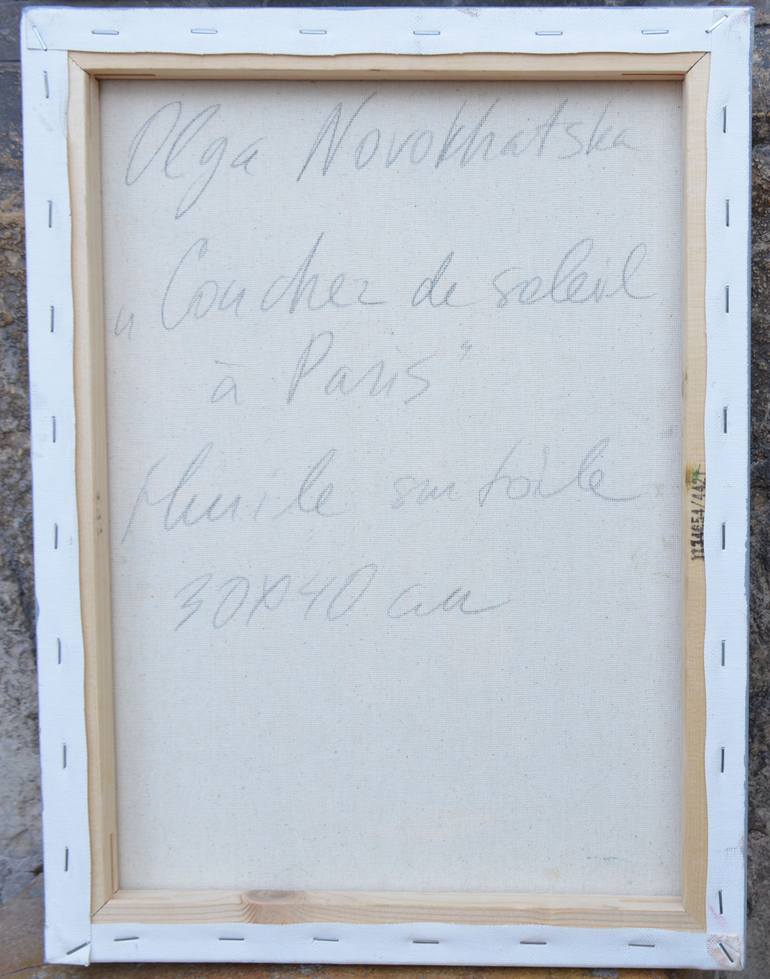 Olga Novokhatska
„Couchez de soleil
à Paris"
Huile sur toile
30x40 cm